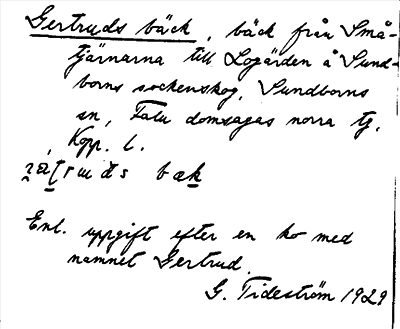 Gertruds bäck, bäck från Små-
tjärnarna till Logärden å Sund-
borns sockenskog, Sundborns
sn, Falu domsagas norra tg,
Kopp. l.
Enl. uppgift efter en ko med
namnet Gertrud.
G. Tideström 1929